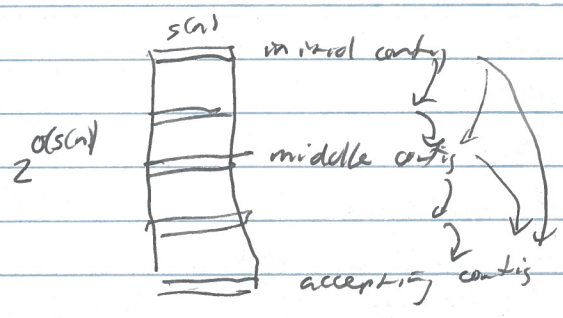 s(n)
initial config
2^O(s(n))
middle config
accepting config